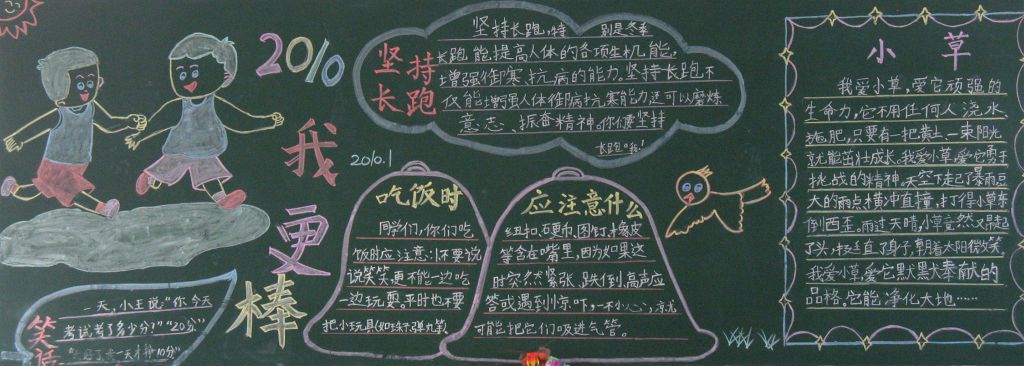 2010
我
更
棒
2010.1
坚持
长跑
坚持长跑,特 别是冬季
长跑能提高人体的各项生机能,
增强御寒抗病的能力.坚持长跑,不
仅能增强人体御病抗寒能力还可以磨炼
意志、振奋精神。你们要坚持
长跑哦!
笑话
一天,小王说:"你今天
考试考了多少分?""20分"
一天才挣10分"
吃饭时
同学们,你们吃
饭时应注意:1.不要说
说笑笑,更不能一边吃
一边玩耍。平时也不要
把小玩具(如珠子、弹丸等
应注意什么
纽扣、硬币、图钉、橡皮
等含在嘴里,因为如果这
时突然紧张、跌倒、高声应
答或遇到惊吓,一不小心,就
可能把它们吸进气管。
小草
我爱小草,爱它顽强的
生命力,它不用任何人浇水
施肥,只要有一把黄土,一束阳光
就能茁壮成长。我爱小草,爱它勇于
挑战的精神。天空下起了暴雨,豆
大的雨点横冲直撞,打得小草东
倒西歪。雨过天晴,小草竟然又翘起
了头,挺直了脖子,朝着太阳微笑
我爱小草,爱它默默奉献的
品格,它能净化大地……